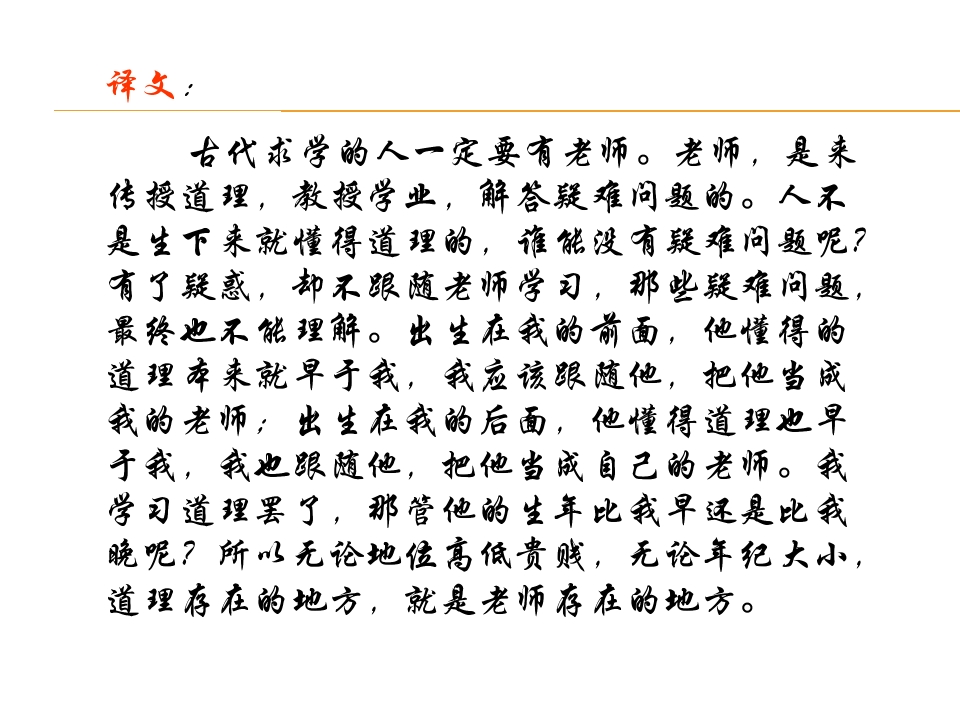 译文：
古代求学的人一定要有老师。老师，是来
传授道理，教授学业，解答疑难问题的。人不
是生下来就懂得道理的，谁能没有疑难问题呢？
有了疑惑，却不跟随老师学习，那些疑难问题，
最终也不能理解。出生在我的前面，他懂得的
道理本来就早于我，我应该跟随他，把他当成
我的老师；出生在我的后面，他懂得道理也早
于我，我也跟随他，把他当成自己的老师。我
学习道理罢了，那管他的生年比我早还是比我
晚呢？所以无论地位高低贵贱，无论年纪大小，
道理存在的地方，就是老师存在的地方。